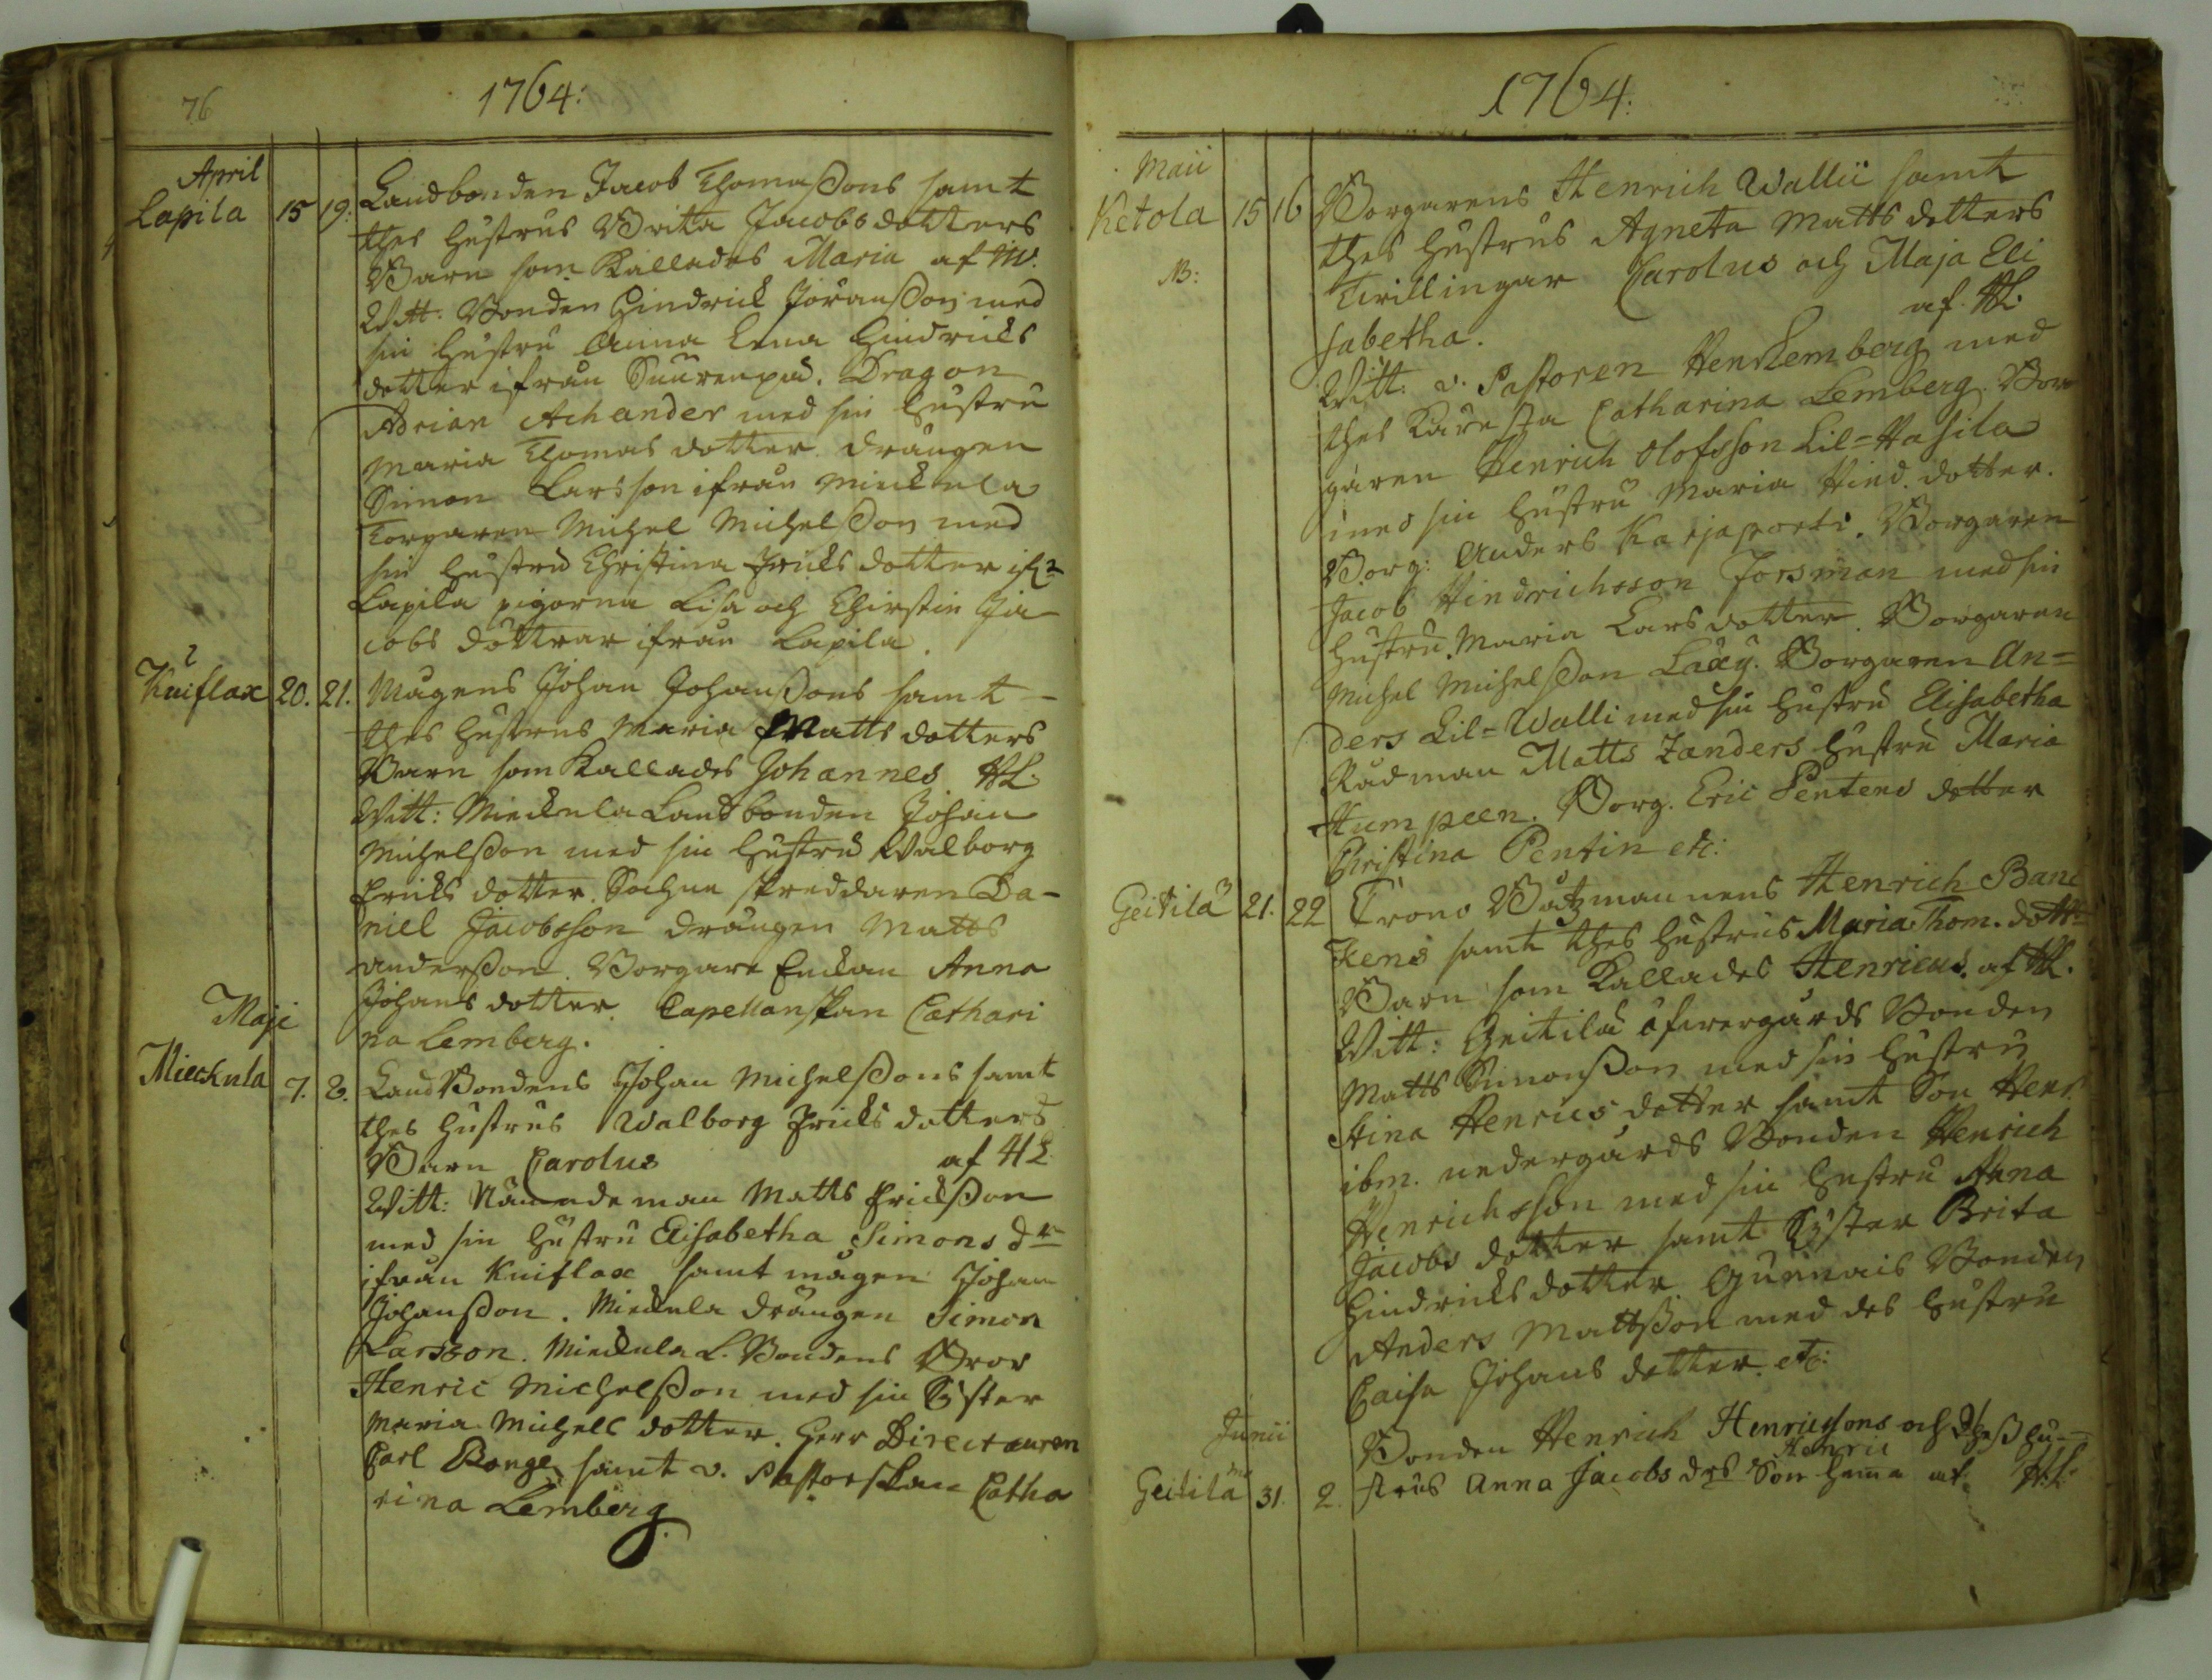 76
1764:
April
Lapila 15 19. Landbonden Jacob Thomaßons samt
thes hustrus Britta Jacobsdotters
Barn som kallades Maria af
Witt. Bonden Hindrick Jöranßon med
sin hustru Anna Lena Hindricks
dotter ifrån Suurenpää. Dragon
Adrian Achander med sin hustru
Maria Thomas dotter. drängen
Simon Larsson ifrån Mieckula
Torparen Michel Michelßon med
sin hustru Christina Ericks dotter ifr:
Lapila pigorna Lisa och Chirstin Ja
cobs döttrar ifrån Lapila.
Kuiflax 20. 21. Mågens Johan Johanßons samt
thes hustrus Maria Matts dotters
Barn som kallades Johannes HL.
Witt: Mieckula Landbonden Johan
Michelßon med sin hustru Walborg
Ericks dotter. Sockne skreddaren Da-
niel Jacobsson drängen Matts
Anderßon. Borgare Enckan Anna
Johans dotter. Capellanskan Cathari
na Lemberg.
Maji
Mieckula 7. 8. Land Bondens Johan Michelßons samt
thes hustrus Walborg Ericks dotters
Barn Carolus af HL.
Witt: Nämndeman Matts Erickßon
med sin hustru Elisabetha Simons dr
ifrån Kuiflax samt mågen Johan
Johanßon. Mieckula drängen Simon
Larsson. Mieckula L. Bondens Bror
Henric Michelßon med sin Syster
Maria Michels dotter. Herr Directeuren
Carl Bonge samt v. Pastorskan Catha
rina Lemberg.
1764.
Maii
Ketola 15 16 Borgarens Henrich Wallii samt
thes hustrus Agneta Matts dotters
NB: Twillingar Carolus och Maja Eli
sabetha. af HL.
Witt: v. Pastoren Henr Lemberg med
thes Käresta Catharina Lemberg. Bor
garen Henrich Olofsson Lil=Hasila
med sin hustru Maria Hind. dotter.
Borg: Anders Karjaporti. Borgaren
Jacob Hindrichsson Forsman med sin
hustru Maria Lars dotter. Borgaren
Michel Michelßon Laxy. Borgaren An=
ders Lil=Walli med sin hustru Elisabetha
Rådman Matts Zanders hustru Maria
Humpeen. Borg. Eric Pentens dotter
Christina Pentin etc:
Geitila 21. 22 Crono Båtzmannens Henrich Banc
kens samt thes hustrus Maria Thom. dott:
Barn som kallades Henricus. af HL.
Witt: Geitilä öfwergårds Bonden
Matts Simonßon med sin hustru
Stina Henrics dotter samt Son Henr.
ibm. nedergårds Bonden Henrich
Henrichsson med sin hustru Anna
Jacobs dotter samt Syster Brita
Hindricks dotter. Bonden
Anders Mattßon med des hustru
Caisa Johans dotter. etc:
Junii
Bonden Henrich Henricssons och deß hu-
Geitila 31. 2. strus Anna Jacobs drs Son Henric af HL.